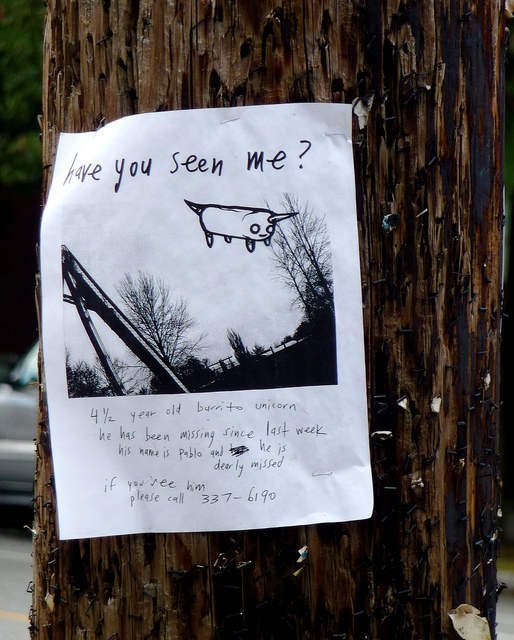 have you seen me?
4 1/2 year old burrito unicorn
he has been missing since last week
his name is pablo and he is
dearly missed
if you see him
please call 337-6190